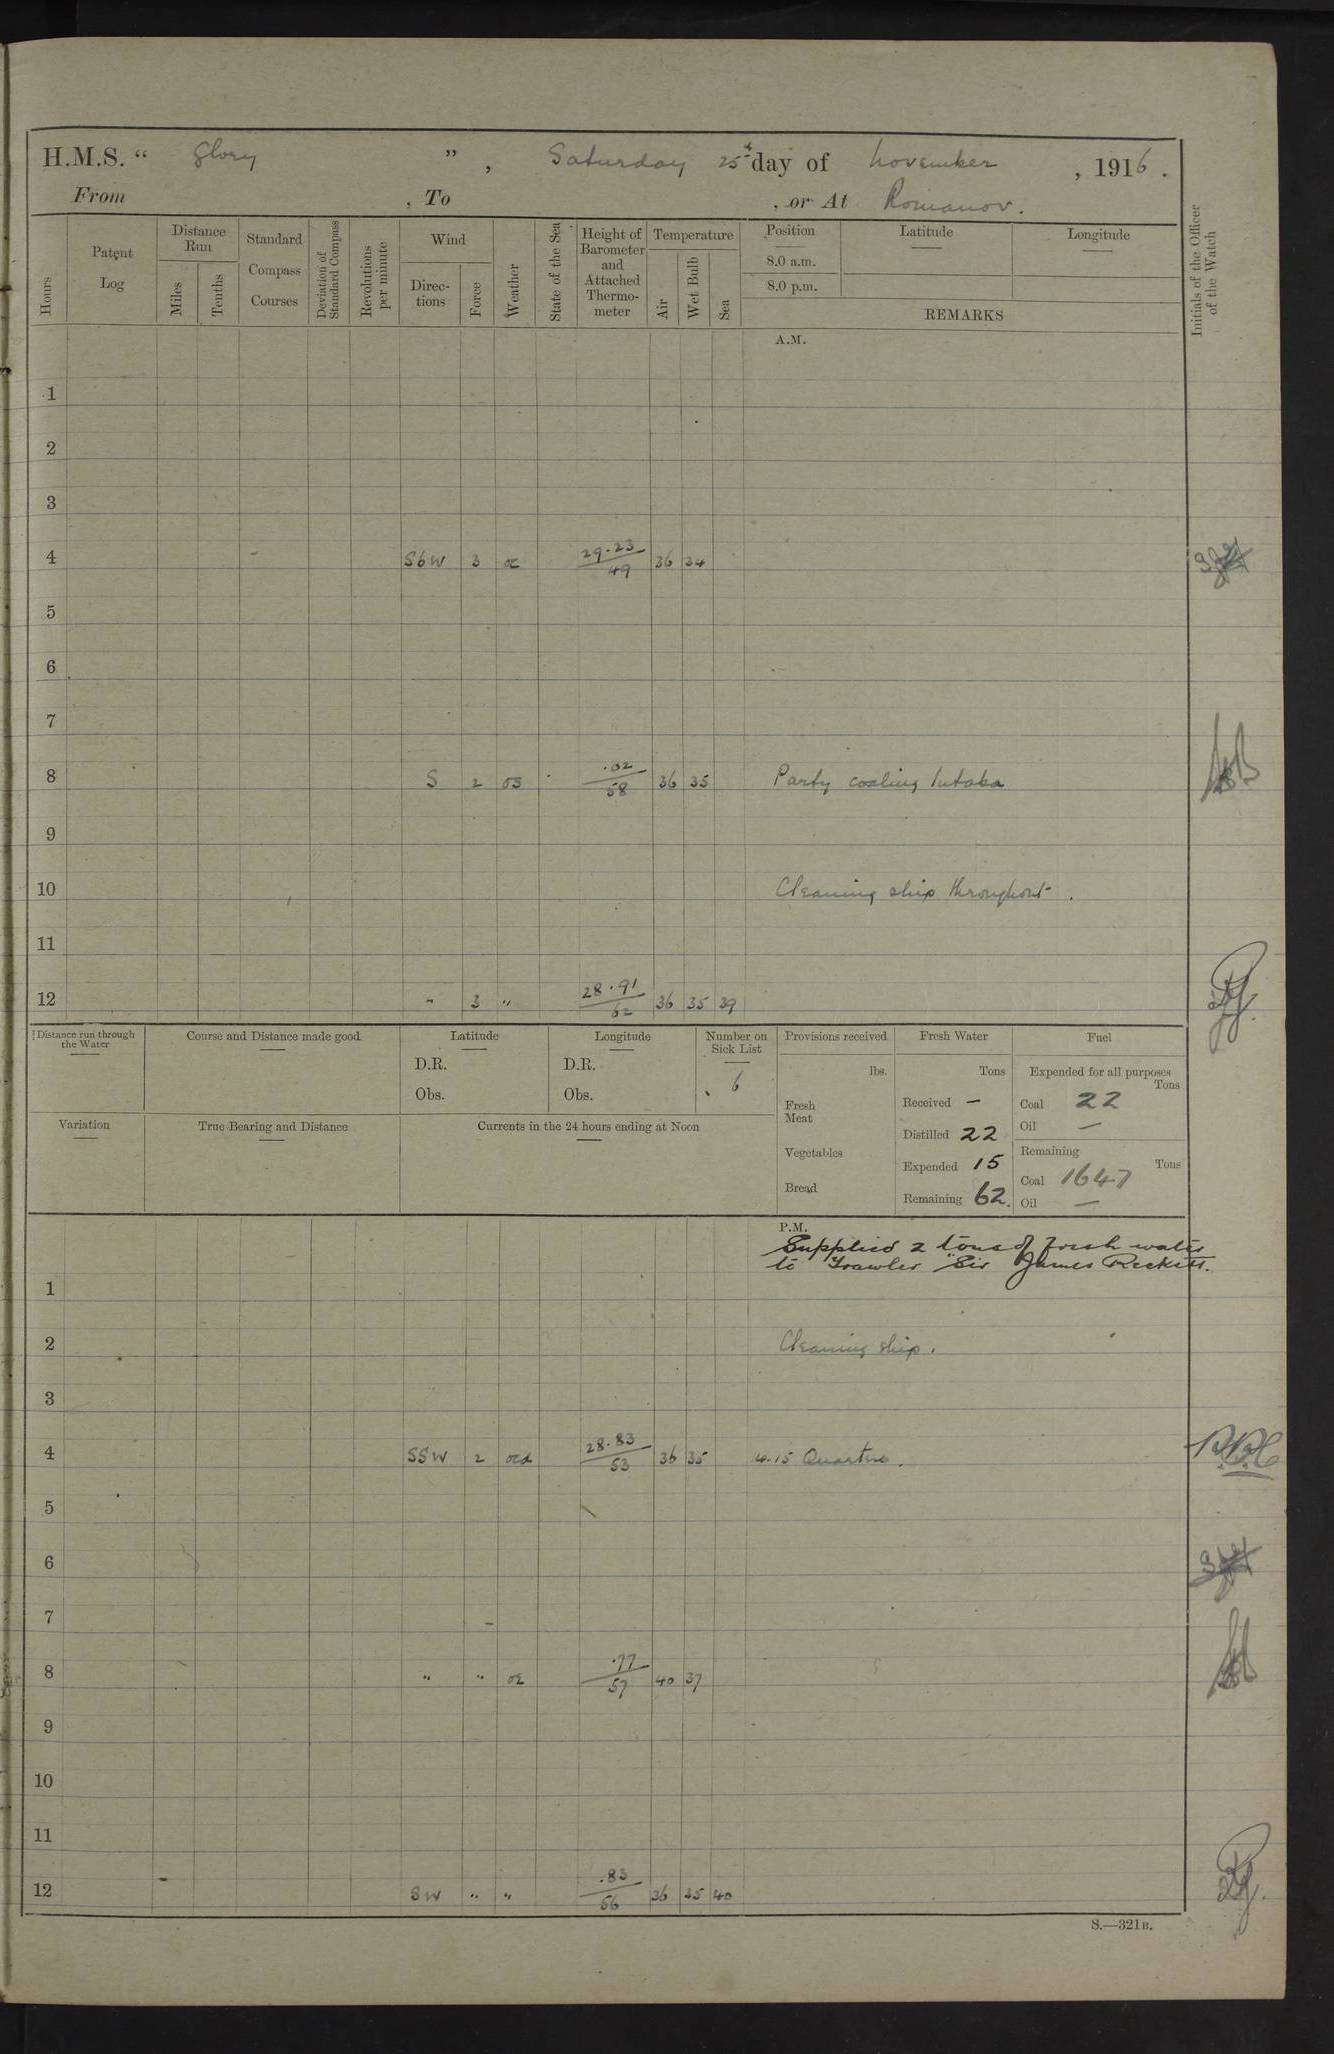 H.M.S. “ Glory ” , Saturday 25th day of November , 1916 .
From , To , or At Romanov .
Hours
Patent Log
Distance Run
Miles
Tenths
Standard Compass Courses
Deviation of Standard Compass
Revolutions per minute
Wind
Directions
Force
Weather
State of the Sea
Height of Barometer and Attached Thermometer
Temperature
Air
Wet Bulb
Sea
Position
8.0 a.m.
8.0 p.m.
Latitude
Longitude
REMARKS
Initials of the Officer of the Watch
A.M.
1
2
3
4 SbW 3 oc 29.23 49 36 34
5
6
7
8 S 2 os .02 58 36 35 Party coaling Intaba
9
10 Cleaning ship throughout .
11
12 " 3 " 28.91 62 36 35 39
Distance run through the Water
Course and Distance made good
Latitude
D.R.
Obs.
Longitude
D.R.
Obs.
Number on Sick List
6
Provisions received
lbs.
Fresh Meat
Vegetables
Bread
Fresh Water
Tons
Received —
Distilled 22
Expended 15
Remaining 62.
Fuel
Expended for all purposes
Tons
Coal 22
Oil —
Remaining
Tons
Coal 1647
Oil —
Variation
True Bearing and Distance
Currents in the 24 hours ending at Noon
P.M.
Supplied 2 tons of fresh water
to Trawler "Sir James Reckitt.
1
2 Cleaning ship .
3
4 SSW 2 ocd 28.83 53 36 35 4.15 Quarters .
5
6
7
8 " " oc .77 57 40 37
9
10
11
12 SW " " .83 56 36 35 40
S.—321B.